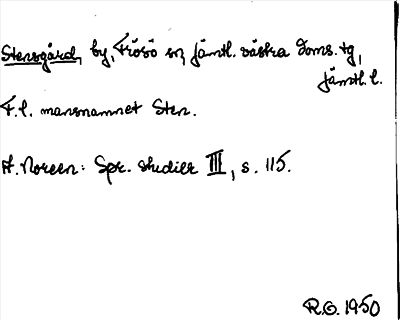 Stensgård, by, Frösö sn, Jämtl. västra doms. tg,
Jämtl. l.
F.l. mansnamnet Sten.
A. Noreen: Spr. studier III, s. 115.
R.O. 1950